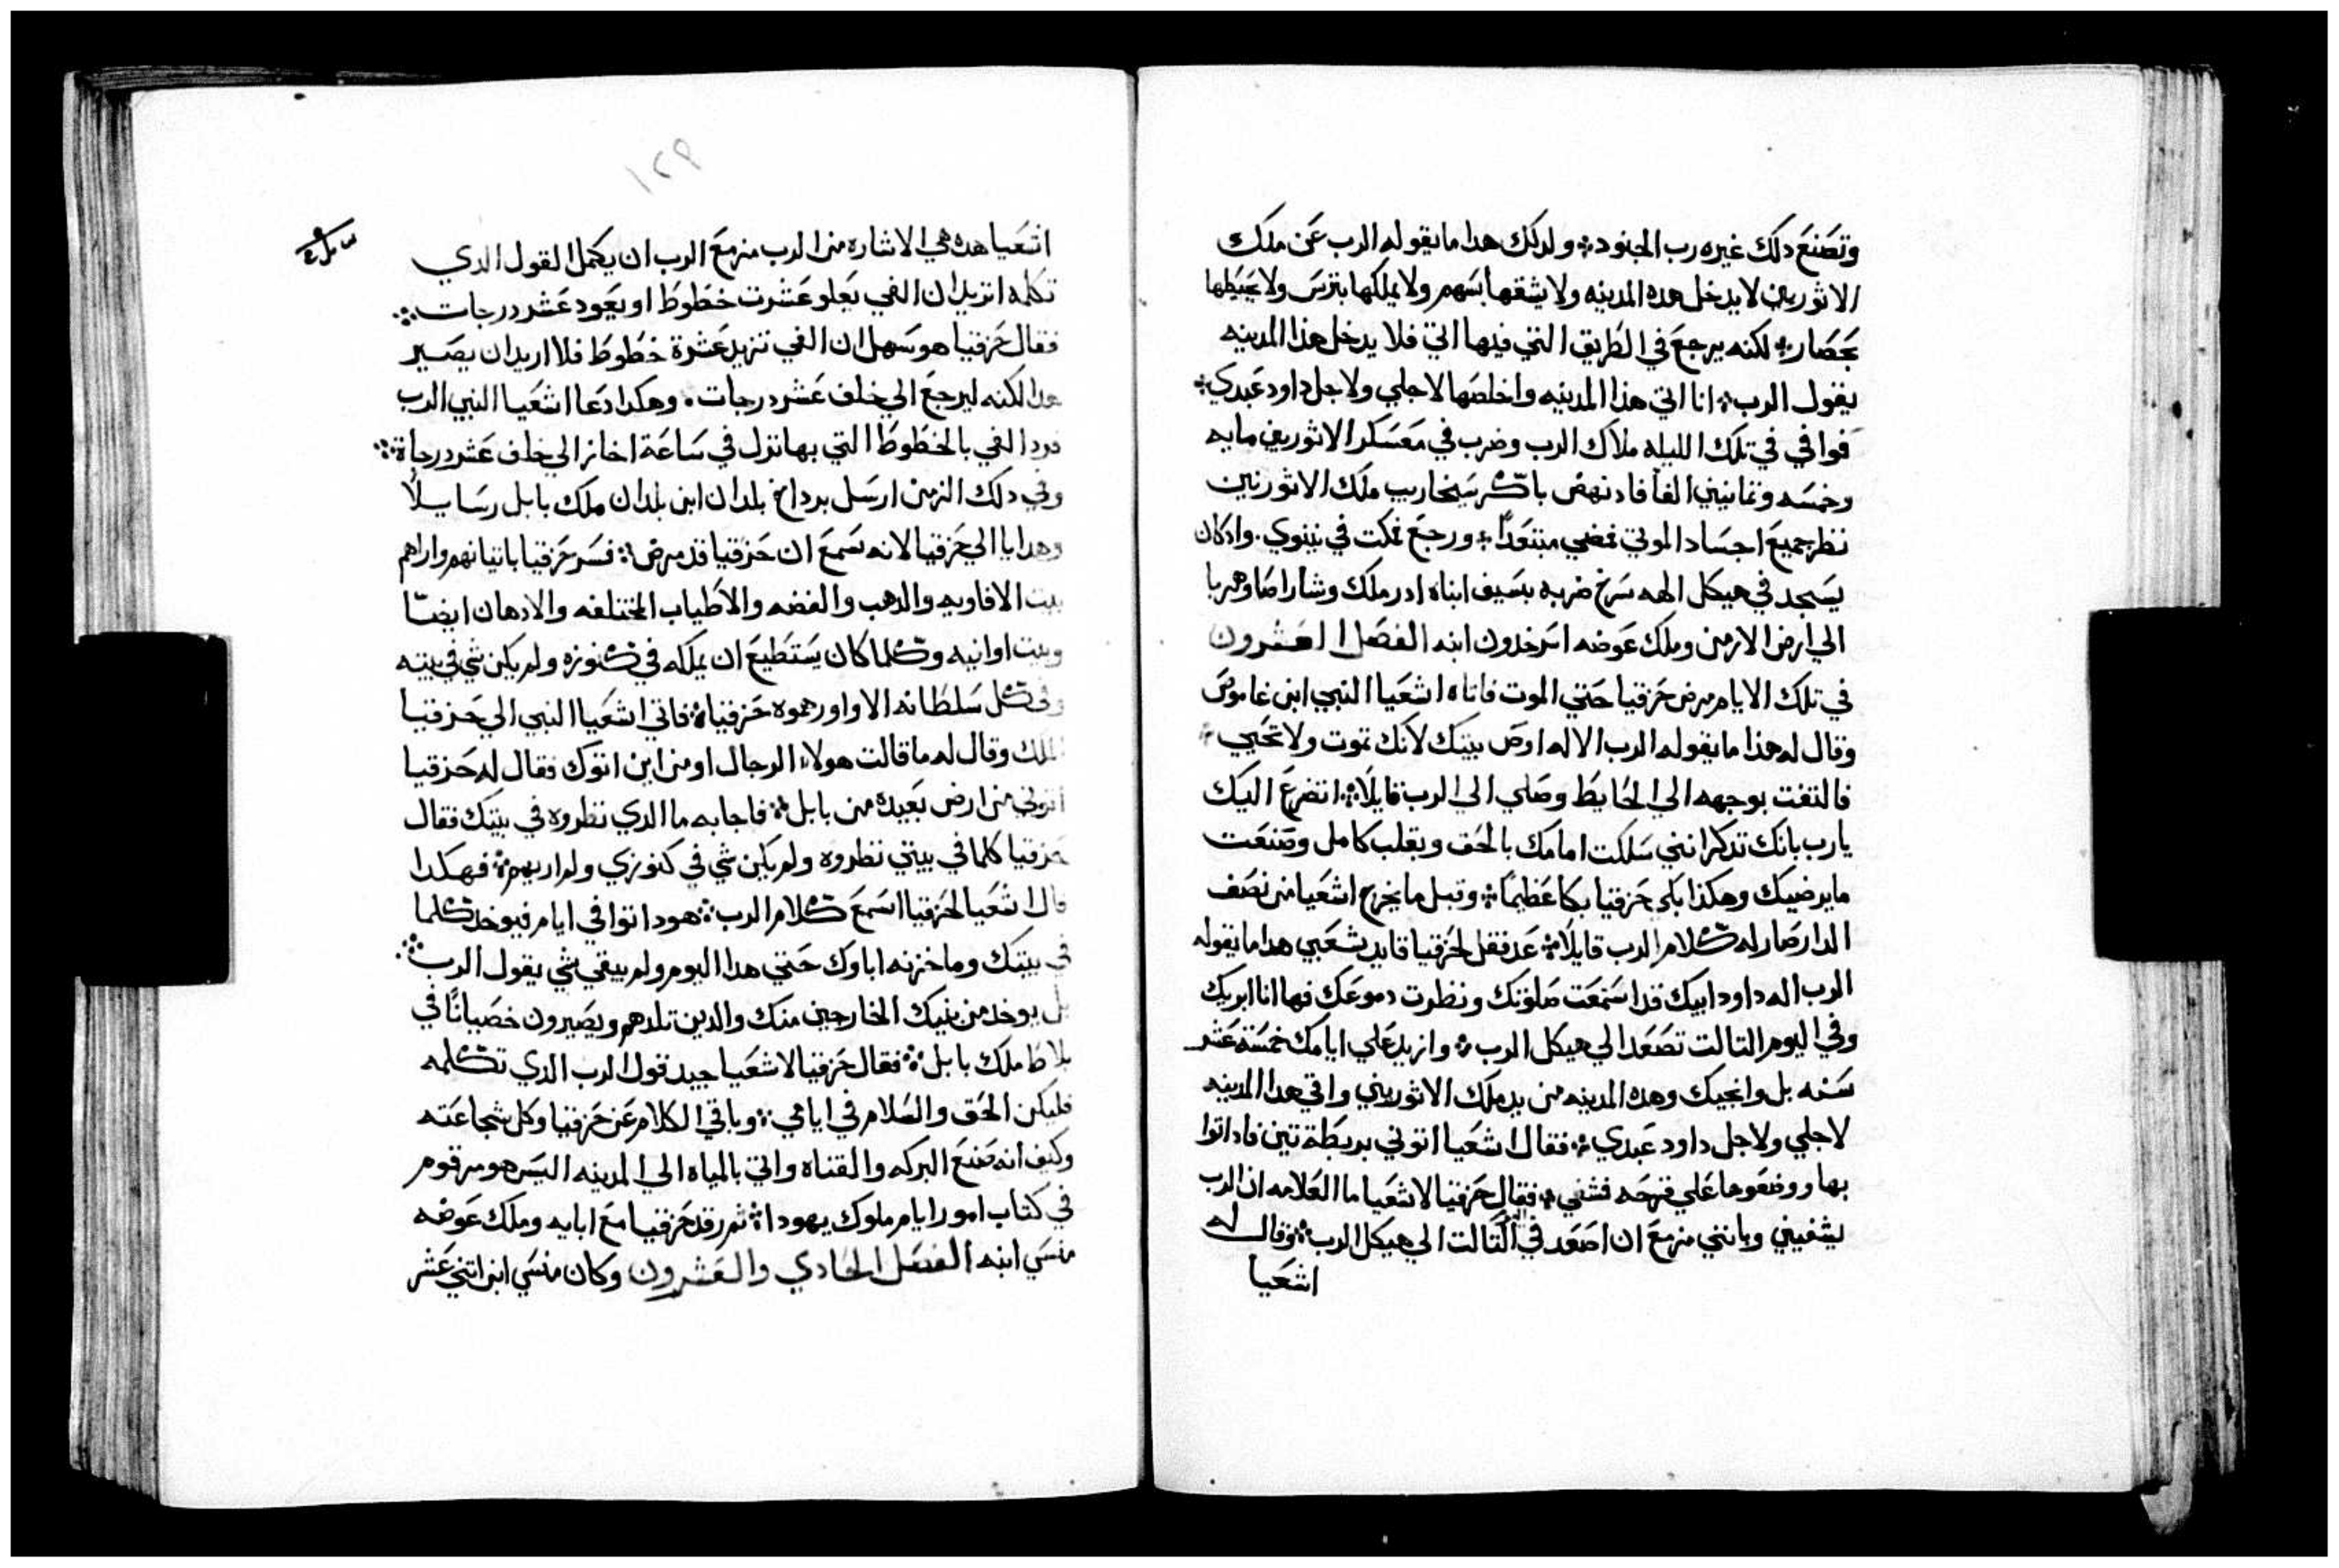 وتصنع دلك غيره رب الجنود ولدلك هدا ما يقوله الرب عن ملك
الاثوريين لا يدخل هده المدينه ولا يشقها بسهم ولا يملكها بترس ولا يحيطها
بحصار لكنه يرجع في الطريق التي فيها اتي فلا يدخل هذا المدينه
يقول الرب انا اتي هذا المدينه واخلصها لاجلي ولاجل داود عبدي
فوافي في تلك الليله ملاك الرب وضرب في معسكر الاثوريين مايه
وخمسه وثمانيين الفا فاد نهض باكر سيخاريب ملك الاثوريين
نظر جميع اجساد الموتي فمضي مبتعدا ورجع فمكت في نينوي. وادكان
يسجد في هيكل الهه سرخ ضربه بسيف ابناه ادرملك وشاراصا وهربا
الي ارض الارمن وملك عوضه اسرخدون ابنه الفصل العشرون
في تلك الايام مرض حزقيا حتي الموت فاتاه اشعيا النبي ابن غاموص
وقال له هذا ما يقوله الرب الاله اوص بيتك لانك تموت ولا تحيي
فالتفت بوجهه الي الحايط وصلي الي الرب قايلا اتضرع اليك
يارب بانك تدكر انني سلكت امامك بالحق وبقلب كامل وصنعت
ما يرضيك وهكذا بكي حزقيا بكا عظيما وقبل ما يخرج اشعيا من نصف
الدار صار له كلام الرب قايلا عد فقل لحزقيا قايد شعبي هدا ما يقوله
الرب اله داود ابيك قد استمعت صلوتك ونظرت دموعك فها انا ابريك
وفي اليوم التالت تصعد الي هيكل الرب وازيد علي ايامك خمسة عشر
سنه بل وانجيك وهده المدينه من يد ملك الاثوريين واقي هدا المدينه
لاجلي ولاجل داود عبدي فقال اشعيا اتوني بربطة تين فاد اتوا
بها ووضعوها علي قرحه فشفي فقال حزقيا لاشعيا ما العلامه ان الرب
يشفيني وبانني مزمع ان اصعد في التالت الي هيكل الرب وقال له
اشعيا
١٢٩
اشعيا هده هي الاشاره من الرب مزمع الرب ان يكمل القول الدي
تكلمه اتريد ان الفي يعلو عشرت خطوط او يعود عشر درجات
فقال حزقيا هو سهل ان الفي تزيد عشرة خطوط فلا اريد ان يصير
هدا لكنه ليرجع الي خلف عشر درجات. وهكدا دعا اشعيا النبي الرب
فرد الفي بالخطوط التي بها نزل في ساعة اخاز الي خلف عشر درجاة
وفي دلك الزمن ارسل برداخ بلدان ابن بلدان ملك بابل رسايلا
وهدايا الي حزقيا لانه سمع ان حزقيا قد مرض فسر حزقيا باتيانهم واراهم
بيت الافاويه والدهب والفضه والاطياب المختلفه والادهان ايضا
وبيت اوانيه وكلما كان يستطيع ان يملكه في كنوزه ولم يكن شي في بيته
وفي كل سلطانه الا واورهموه حزقياه فاتي اشعيا النبي الي حزقيا
الملك وقال له ما قالت هولاء الرجال او من اين اتوك فقال له حزقيا
اتوني من ارض بعيده من بابل فاجابه ما الدي نظروه في بيتك فقال
حزقيا كلما في بيتي نظروه ولم يكن شي في كنوزي ولم اريهم فهكدا
قال اشعيا لحزقيا اسمع كلام الرب هودا توافي ايام فيوخد كلما
في بيتك وما خزنه اباوك حتي هدا اليوم ولم يبقي شي يقول الرب
بل يوخد من بنيك الخارجين منك والدين تلدهم ويصيرون خصيانا في
بلاط ملك بابل فقال حزقيا لاشعيا جيد قول الرب الدي تكلمه
فليكن الحق والسلام في ايامي وباقي الكلام عن حزقيا وكل شجاعته
وكيف انه صنع البركه والقناه واتي بالمياه الي المدينه اليس هو مرقوم
في كتاب امور ايام ملوك يهودا ثم رقد حزقيا مع ابايه وملك عوضه
منسي ابنه الفصل الحادي والعشرون وكان منسي ابن اتني عشر